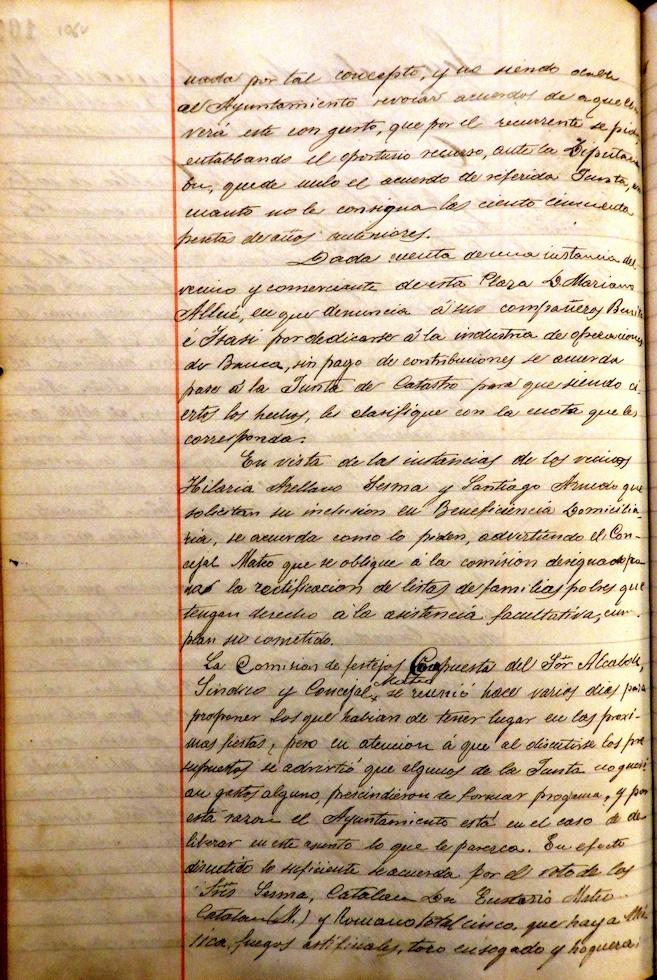 nada por tal concepto, y no siendo
al Ayuntamiento revocar acuerdos de aquella
verá este con gusto, que por el recurrente se pida
entablando el oportuno recurso, ante la Diputa
cion, quede nulo el acuerdo de referida Junta, en
cuanto no le consigna las ciento cincuenta
pesetas de años anteriores.
Dada cuenta de una instancia del
vecino y comerciante de esta Plaza D. Mariano
Allue, en que denuncia á sus compañeros Benito
é Isasi por dedicarse á la industria de operaciones
de Banca, sin pago de contribuciones se acuerda
pase á la Junta de Catastro para que siendo ci-
ertos los hechos, les clasifique con la cuota que les
corresponda.
En vista de las instancias de los vecinos
Hilaria Arellano Sesma y Santiago Arnedo que
solicitan su inclusion en Beneficencia Domicilia-
ria, se acuerda como lo piden, advirtiendo el Con-
cejal Mateo que se oblique á la comision designada pa-
ra la rectificacion de listas de familias pobres que
tengan derecho á la asistencia facultativa, cum-
plan su cometido.
La Comision de festejos Compuesta del Sor. Alcalde,
Sindico y Concejal Mateo se reunió hace varios dias para
proponer los que habian de tener lugar en las proxi-
mas fiestas, pero en atencion á que al discutirse los pre
supuestos se advirtió que algunos de la Junta no queri-
an gastos alguno, prescindieron de formar programa, y por
esta razon el Ayuntamiento está en el caso de de
liberar en este asunto lo que le parezca. En efecto
discutido lo suficiente se acuerda por el voto de los
Sres. Sesma, Catalan Dn. Eustasio Mateo
Catalan (M.) y Romano total cinco que haya Mú-
sica, fuegos artificiales, toro ensogado y hogueras